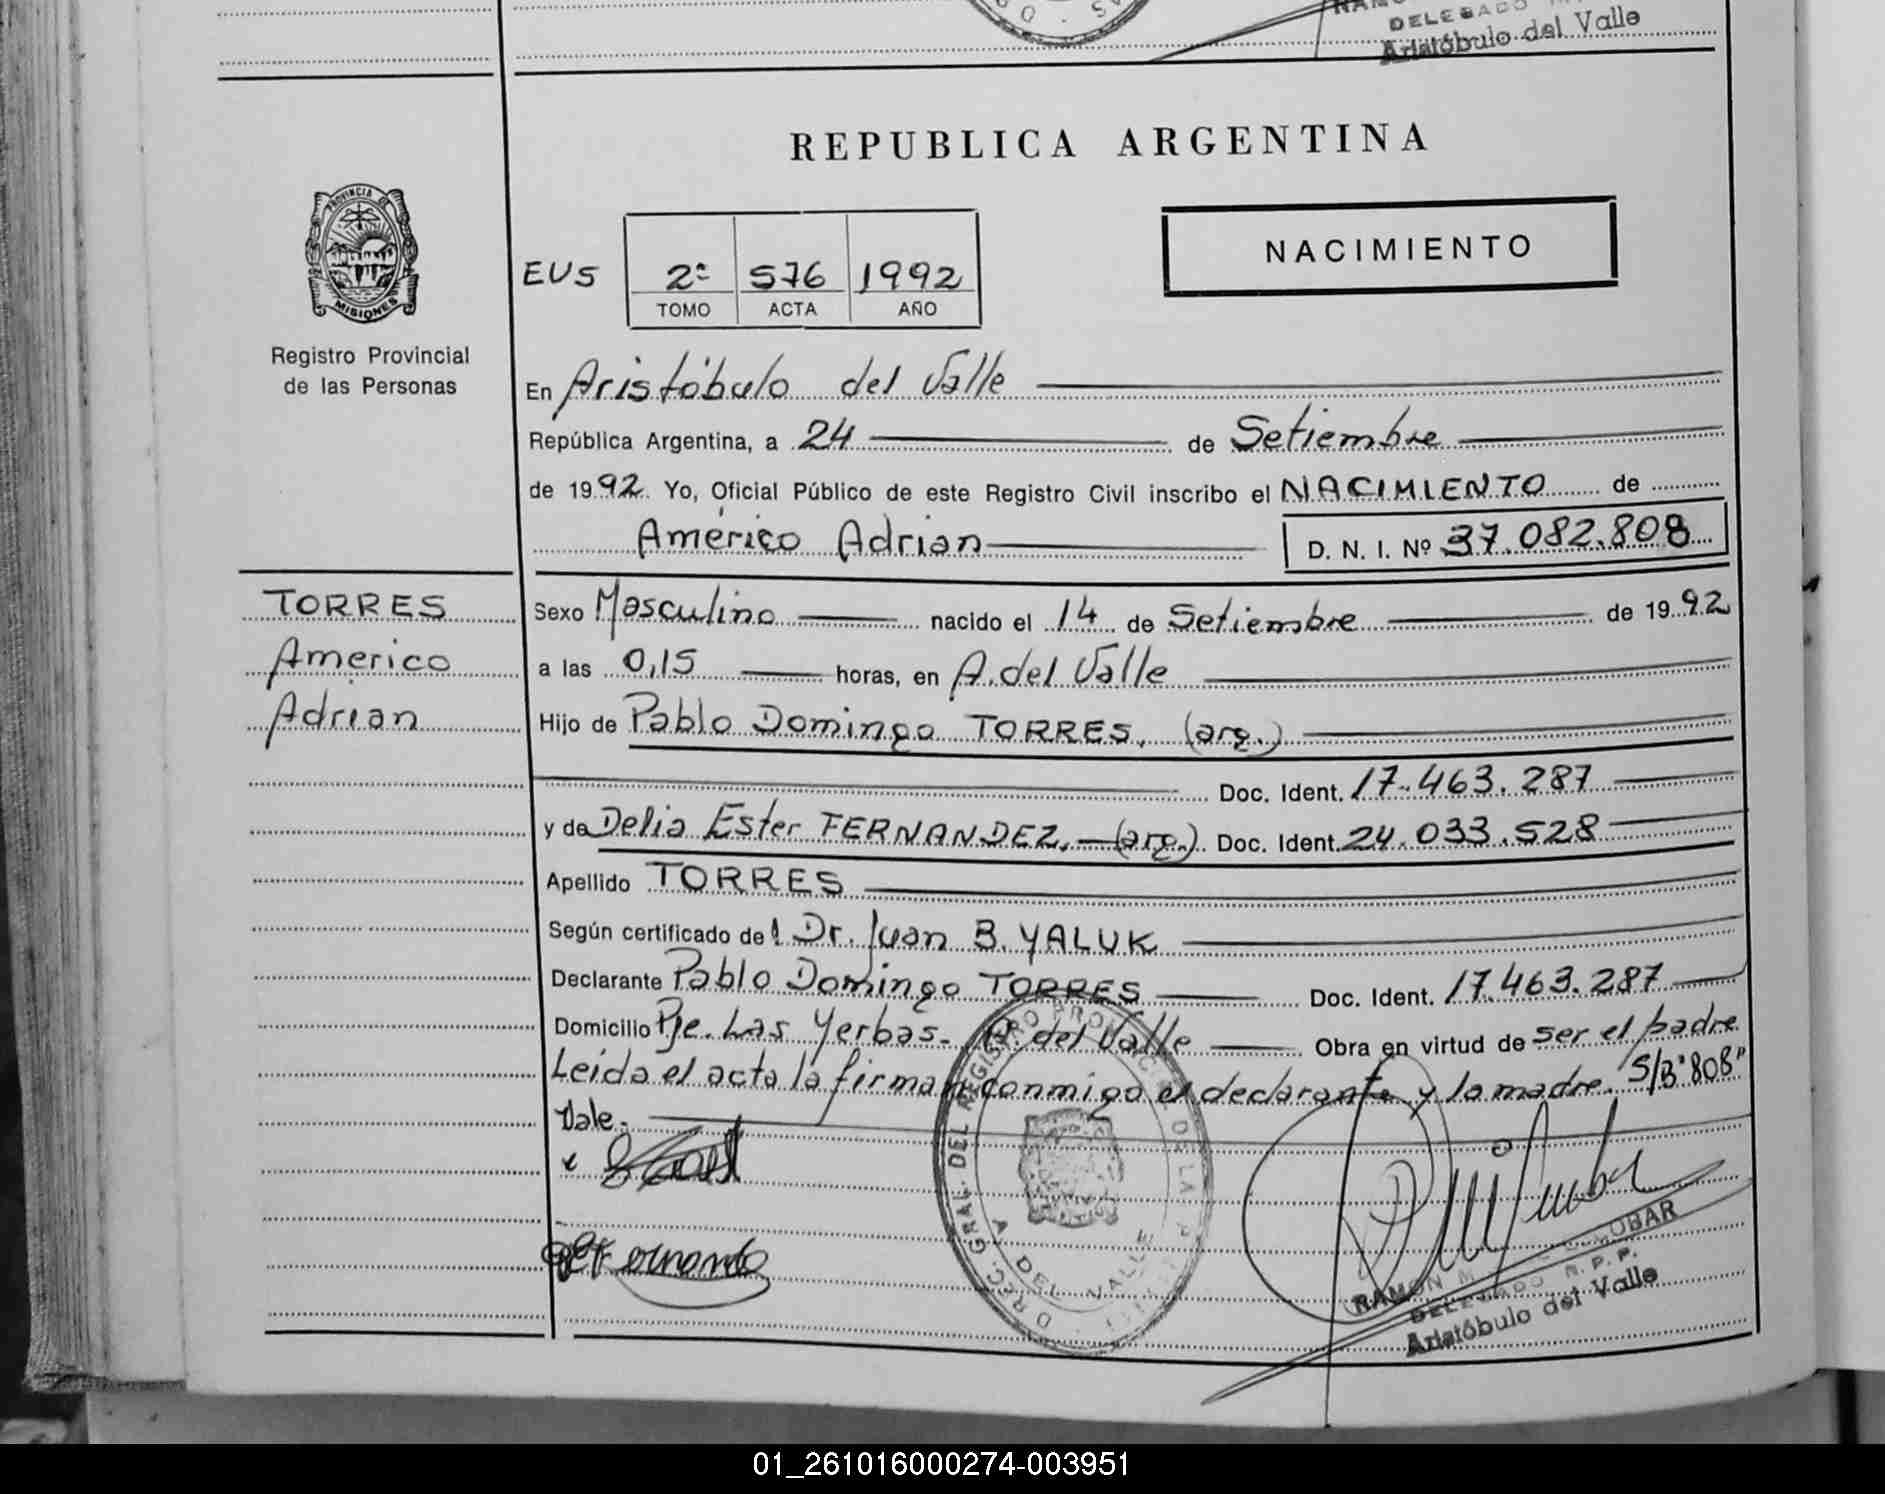 DELEGADO
Aristóbulo del Valle
REPUBLICA ARGENTINA
PROVINCIA DE
MISIONES
Registro Provincial
de las Personas
NACIMIENTO
EUS 2º 576 1992
TOMO ACTA AÑO
En Aristóbulo del Valle
República Argentina, a 24 de Setiembre
de 1992. Yo, Oficial Público de este Registro Civil inscribo el NACIMIENTO de
Américo Adrian D. N. I. Nº 37.082.808
TORRES
Americo
Adrian
Sexo Masculino nacido el 14 de Setiembre de 1992
a las 0,15 horas, en A. del Valle
Hijo de Pablo Domingo TORRES. (arg.)
Doc. Ident. 17.463.287
y de Delia Ester FERNANDEZ. (arg.) Doc. Ident. 24.033.528
Apellido TORRES
Según certificado del Dr. Juan B. YALUK
Declarante Pablo Domingo TORRES Doc. Ident. 17.463.287
Domicilio Pje. Las Yerbas. A. del Valle Obra en virtud de ser el padre
Leida el acta la firman conmigo el declarante y la madre. S/B "808"
Vale.
DEL REGISTRO PROVINCIAL DE LA
DEL VALLE
RAMON
DELEGADO R. P. P.
Aristóbulo del Valle
01_261016000274-003951